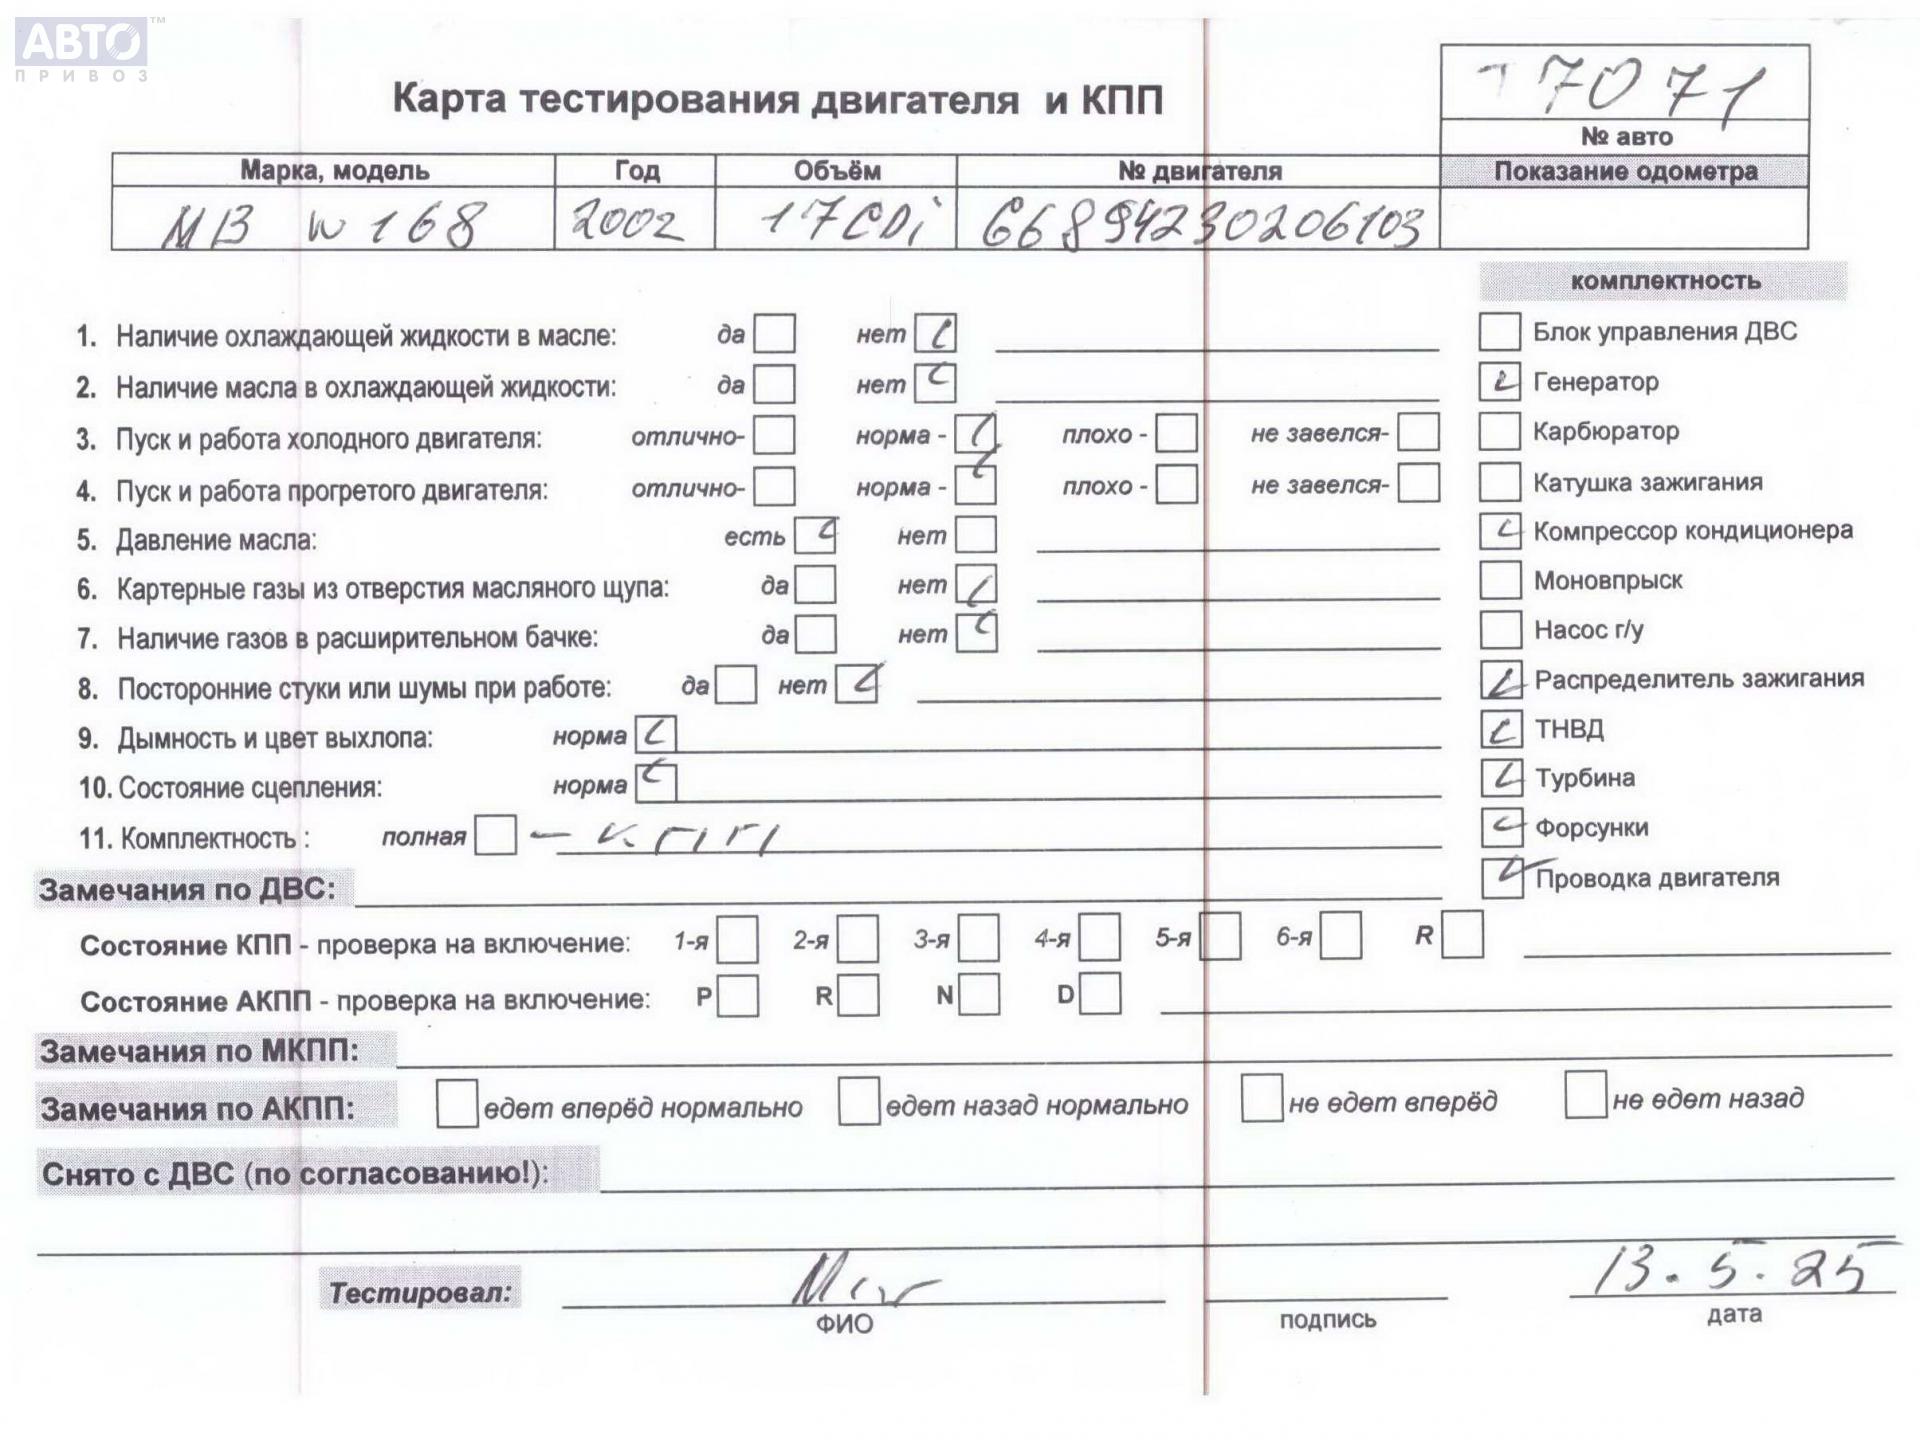 АВТО™
ПРИВОЗ
T7071
Карта тестирования двигателя и КПП
№ авто
Марка, модель Год Объём № двигателя Показание одометра
MB W168 2002 17CDi 66894230206103
комплектность
1. Наличие охлаждающей жидкости в масле: да нет
Блок управления ДВС
2. Наличие масла в охлаждающей жидкости: да нет
Генератор
3. Пуск и работа холодного двигателя: отлично- норма - плохо - не завелся-
Карбюратор
4. Пуск и работа прогретого двигателя: отлично- норма - плохо - не завелся-
Катушка зажигания
5. Давление масла: есть нет
Компрессор кондиционера
6. Картерные газы из отверстия масляного щупа: да нет
Моновпрыск
7. Наличие газов в расширительном бачке: да нет
Насос г/у
8. Посторонние стуки или шумы при работе: да нет
Распределитель зажигания
9. Дымность и цвет выхлопа: норма
ТНВД
10. Состояние сцепления: норма
Турбина
11. Комплектность : полная - КПП
Форсунки
Проводка двигателя
Замечания по ДВС:
Состояние КПП - проверка на включение: 1-я 2-я 3-я 4-я 5-я 6-я R
Состояние АКПП - проверка на включение: P R N D
Замечания по МКПП:
Замечания по АКПП: едет вперёд нормально едет назад нормально не едет вперёд не едет назад
Снято с ДВС (по согласованию!):
Тестировал: 13.5.25
ФИО подпись дата